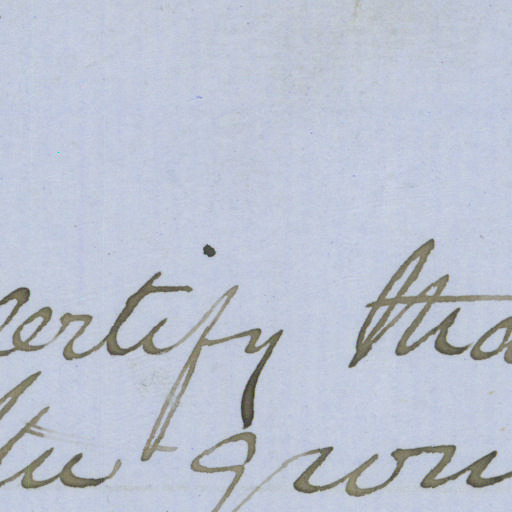 certify tha
the grou